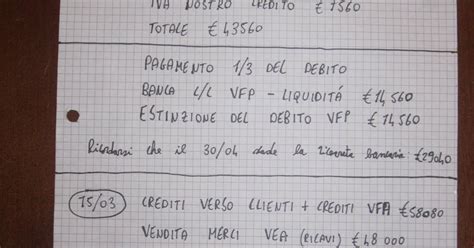 IVA NOSTRO CREDITO € 7560
TOTALE € 43560
PAGAMENTO 1/3 DEL DEBITO
BANCA C/C VFP - LIQUIDITÁ € 14,560
ESTINZIONE DEL DEBITO VFP € 14,560
Ricordarsi che il 30/04 scade la ricevuta bancaria €29040
15/03 CREDITI VERSO CLIENTI + CREDITI VFA €58080
VENDITA MERCI VEA (RICAVI) €48000